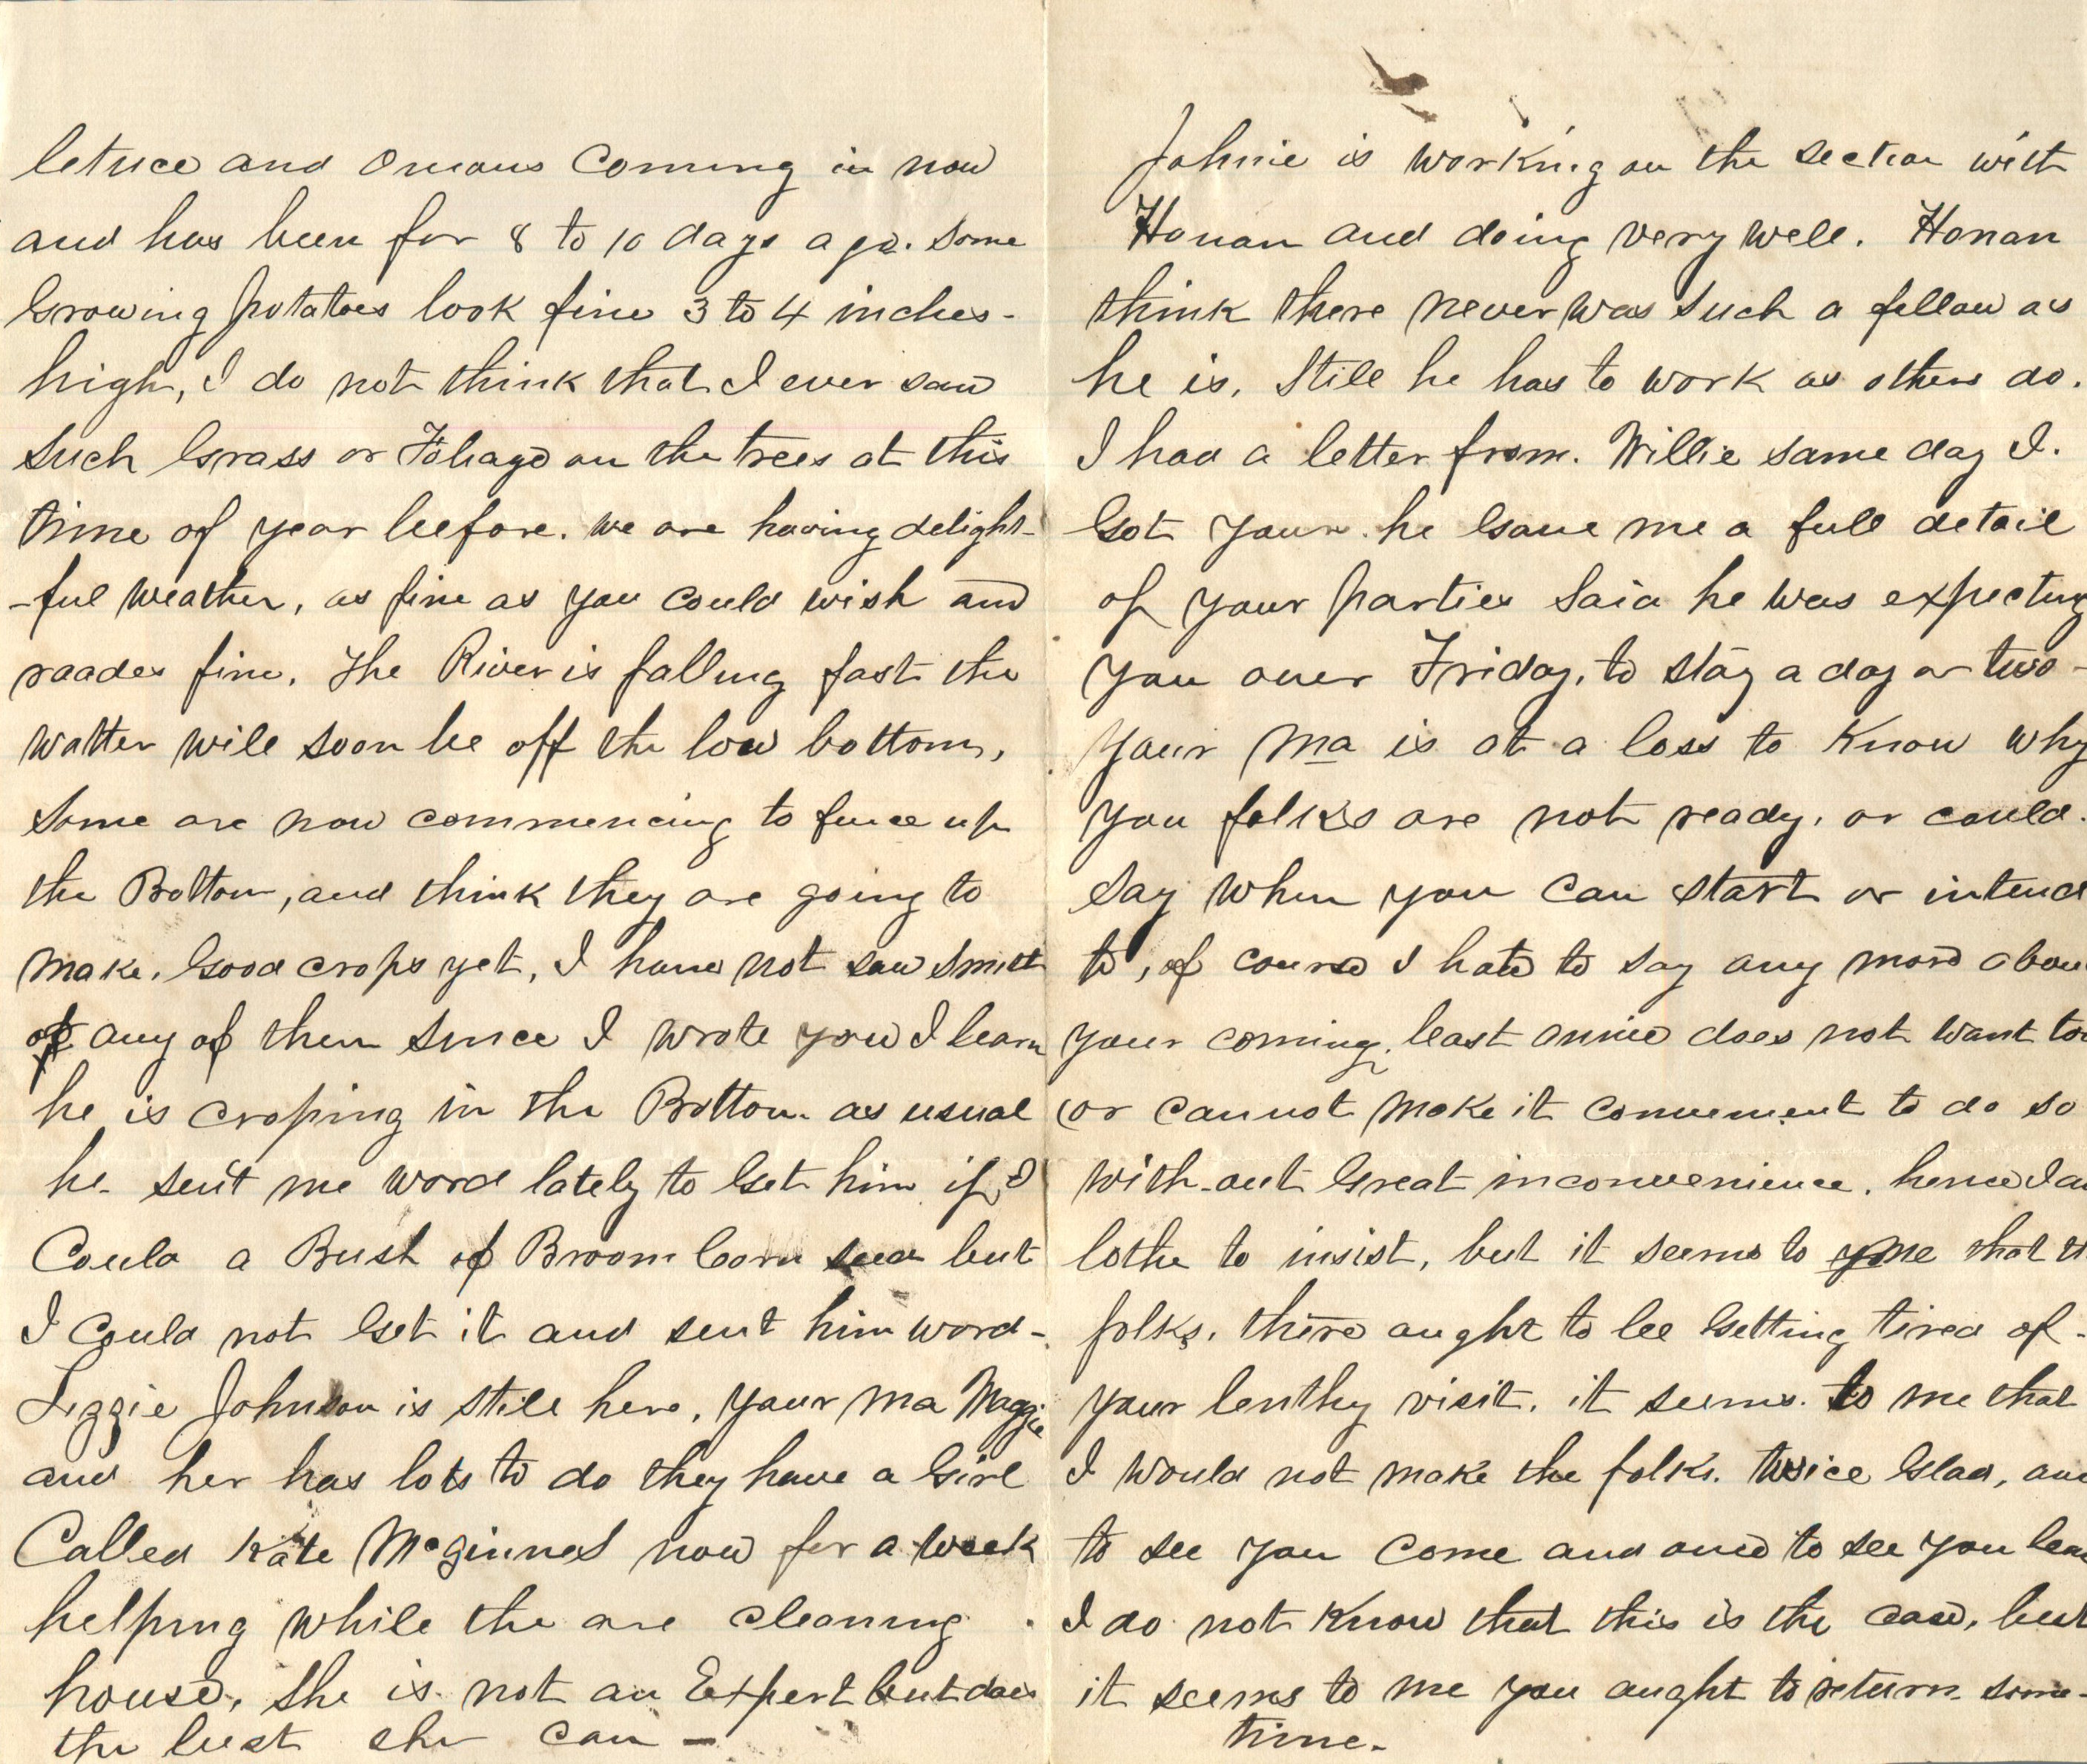 letuce and Onions Coming in now
and has been for 8 to 10 days ago. some
Growing potatoes look fine 3 to 4 inches-
high, I do not think that I ever saw
such Grass or Foliage on the trees at this
time of year before. we are having delight-
-ful weather, as fine as you could wish and
roades fine. The River is falling fast the
watter will soon be off the low bottom,
some are now commencing to fence up
the Bottom, and think they are going to
make. Good crops yet, I have not saw Smith
or any of them since I wrote you I learn
he is croping in the Bottom as usual
he sent me word lately to Get him if I
Could a Bush of Broom Corn seed but
I could not Get it and sent him word-
Lizzie Johnson is still here, your ma Maggie
and her has lots to do they have a Girl
Called Kate McGinnes now for a week
helping while the are cleaning
house, she is not an Expert but does
the best she can -
Johnie is working on the section with
Honan and doing very well. Honan
think there never was such a fellow as
he is. Still he has to work as others do.
I had a letter from. Willie same day I.
Got your. he Gave me a full detail
of your parties said he was expecting
you over Friday, to stay a day or two-
your ma is at a loss to know why
you folks are not ready, or could.
say when you can start or intend
to, of course I hate to say any more abou
your coming, least annie does not want to
or cannot make it convenient to do so
with-out Great inconvenience. hence I a
lothe to insist, but it seems to me that
folks, there aught to be Getting tired of-
your lenthy visit. it seems. to me that
I would not make the folks. twice Glad, one
to see you come and one to see you leav
I do not know that this is the case, but
it seems to me you aught to return some-
time-